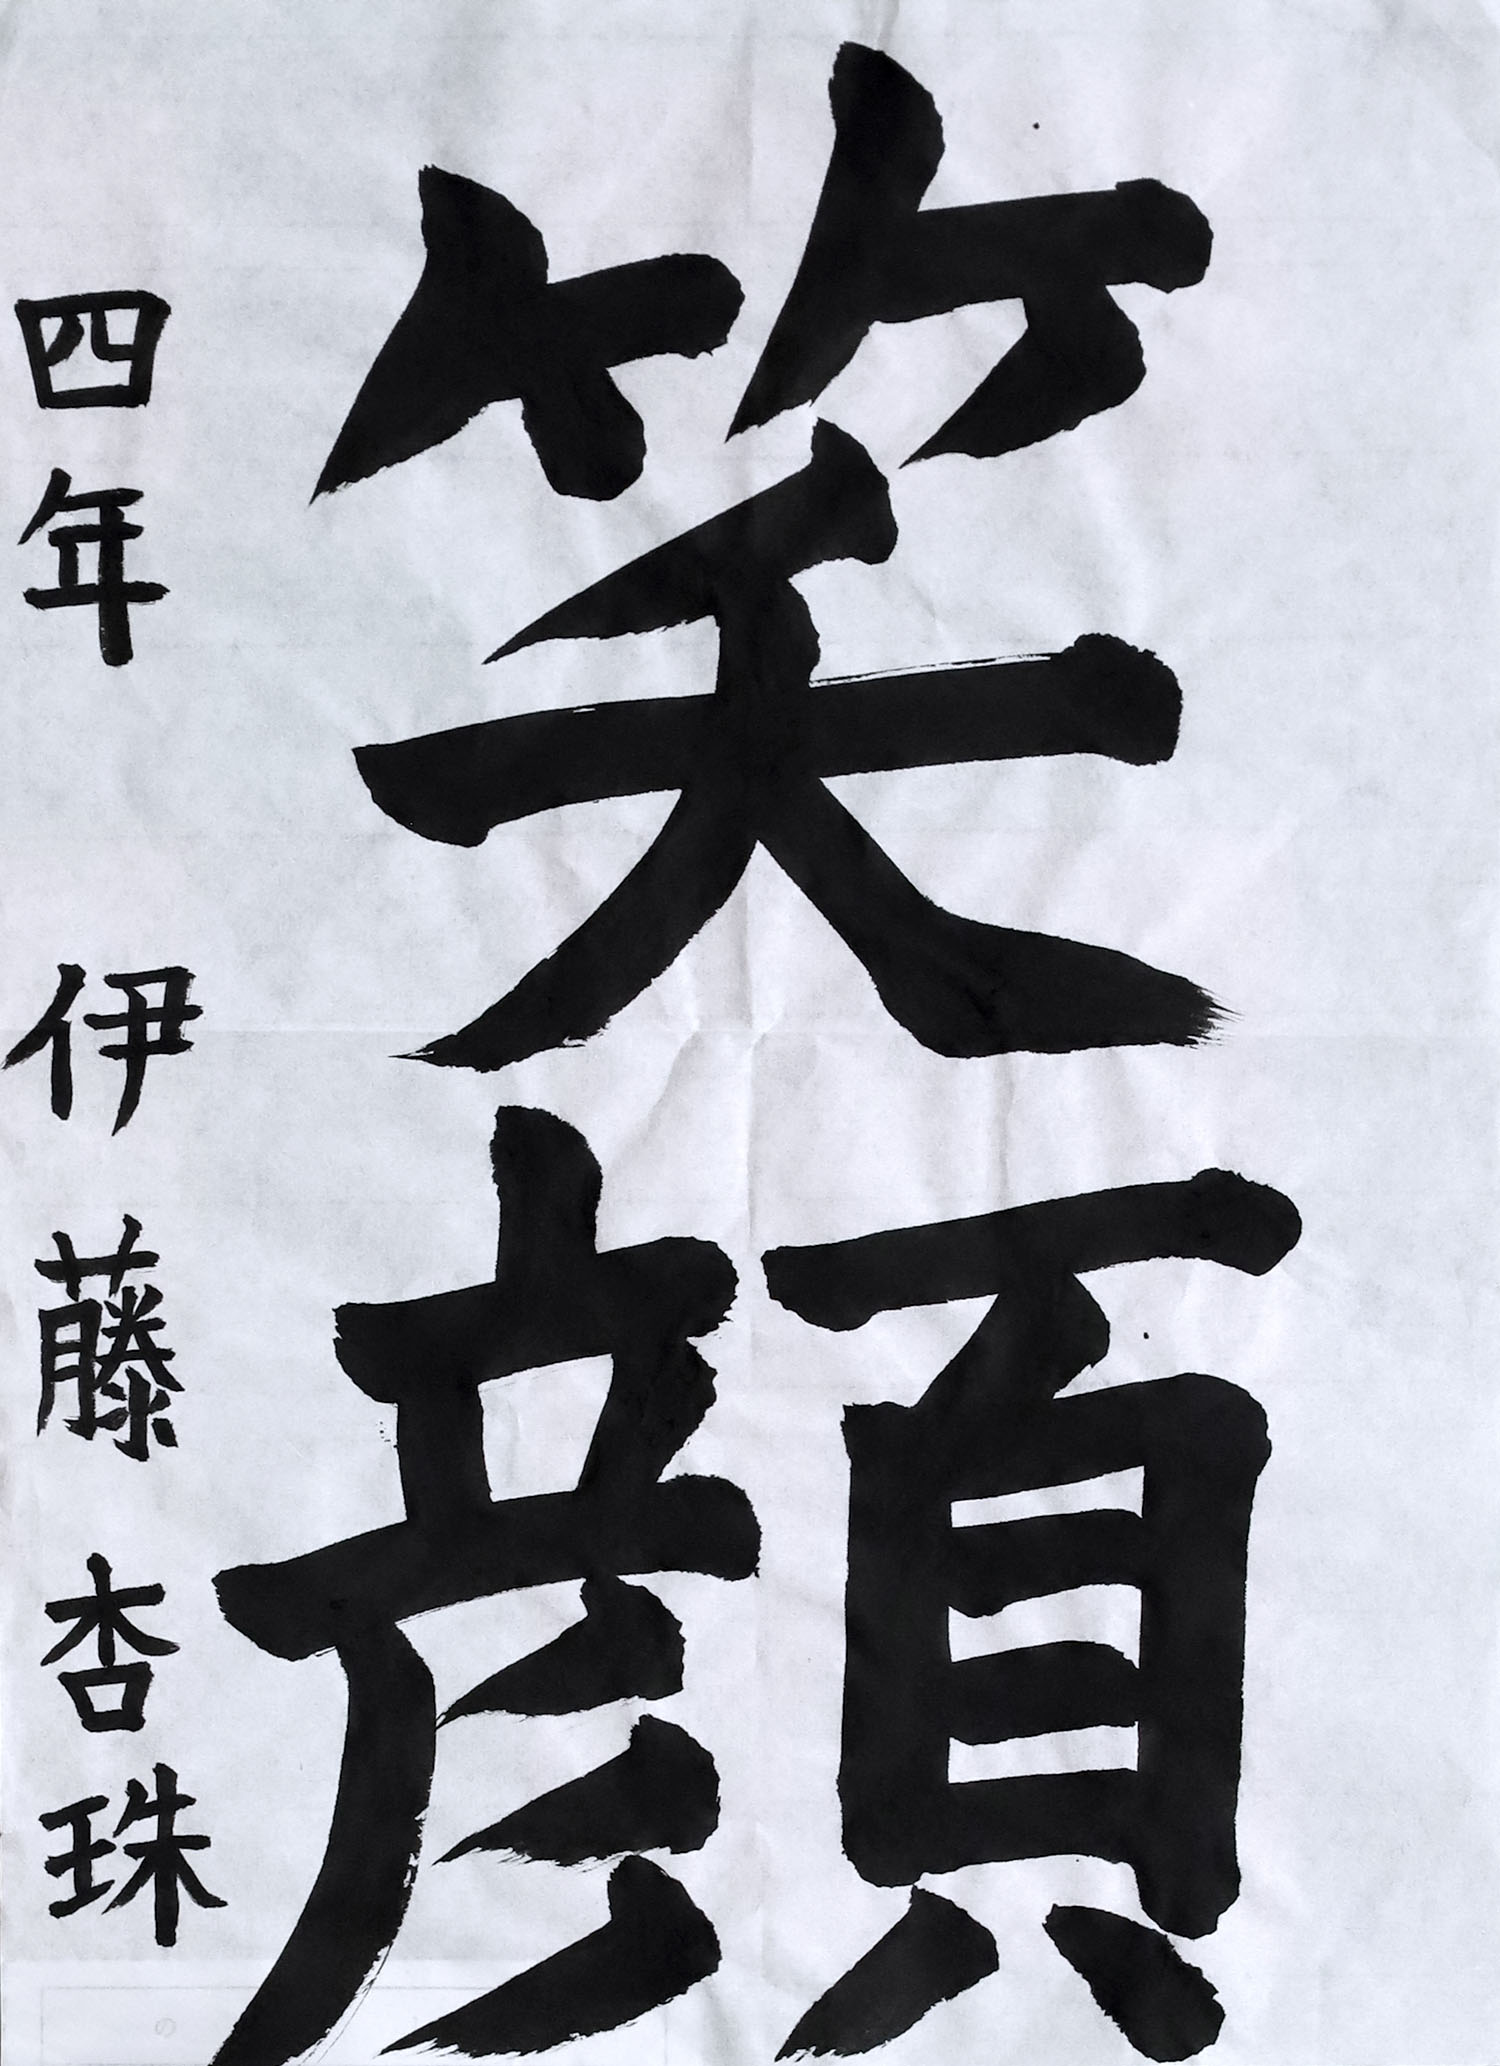 笑顔
四年 伊藤杏珠